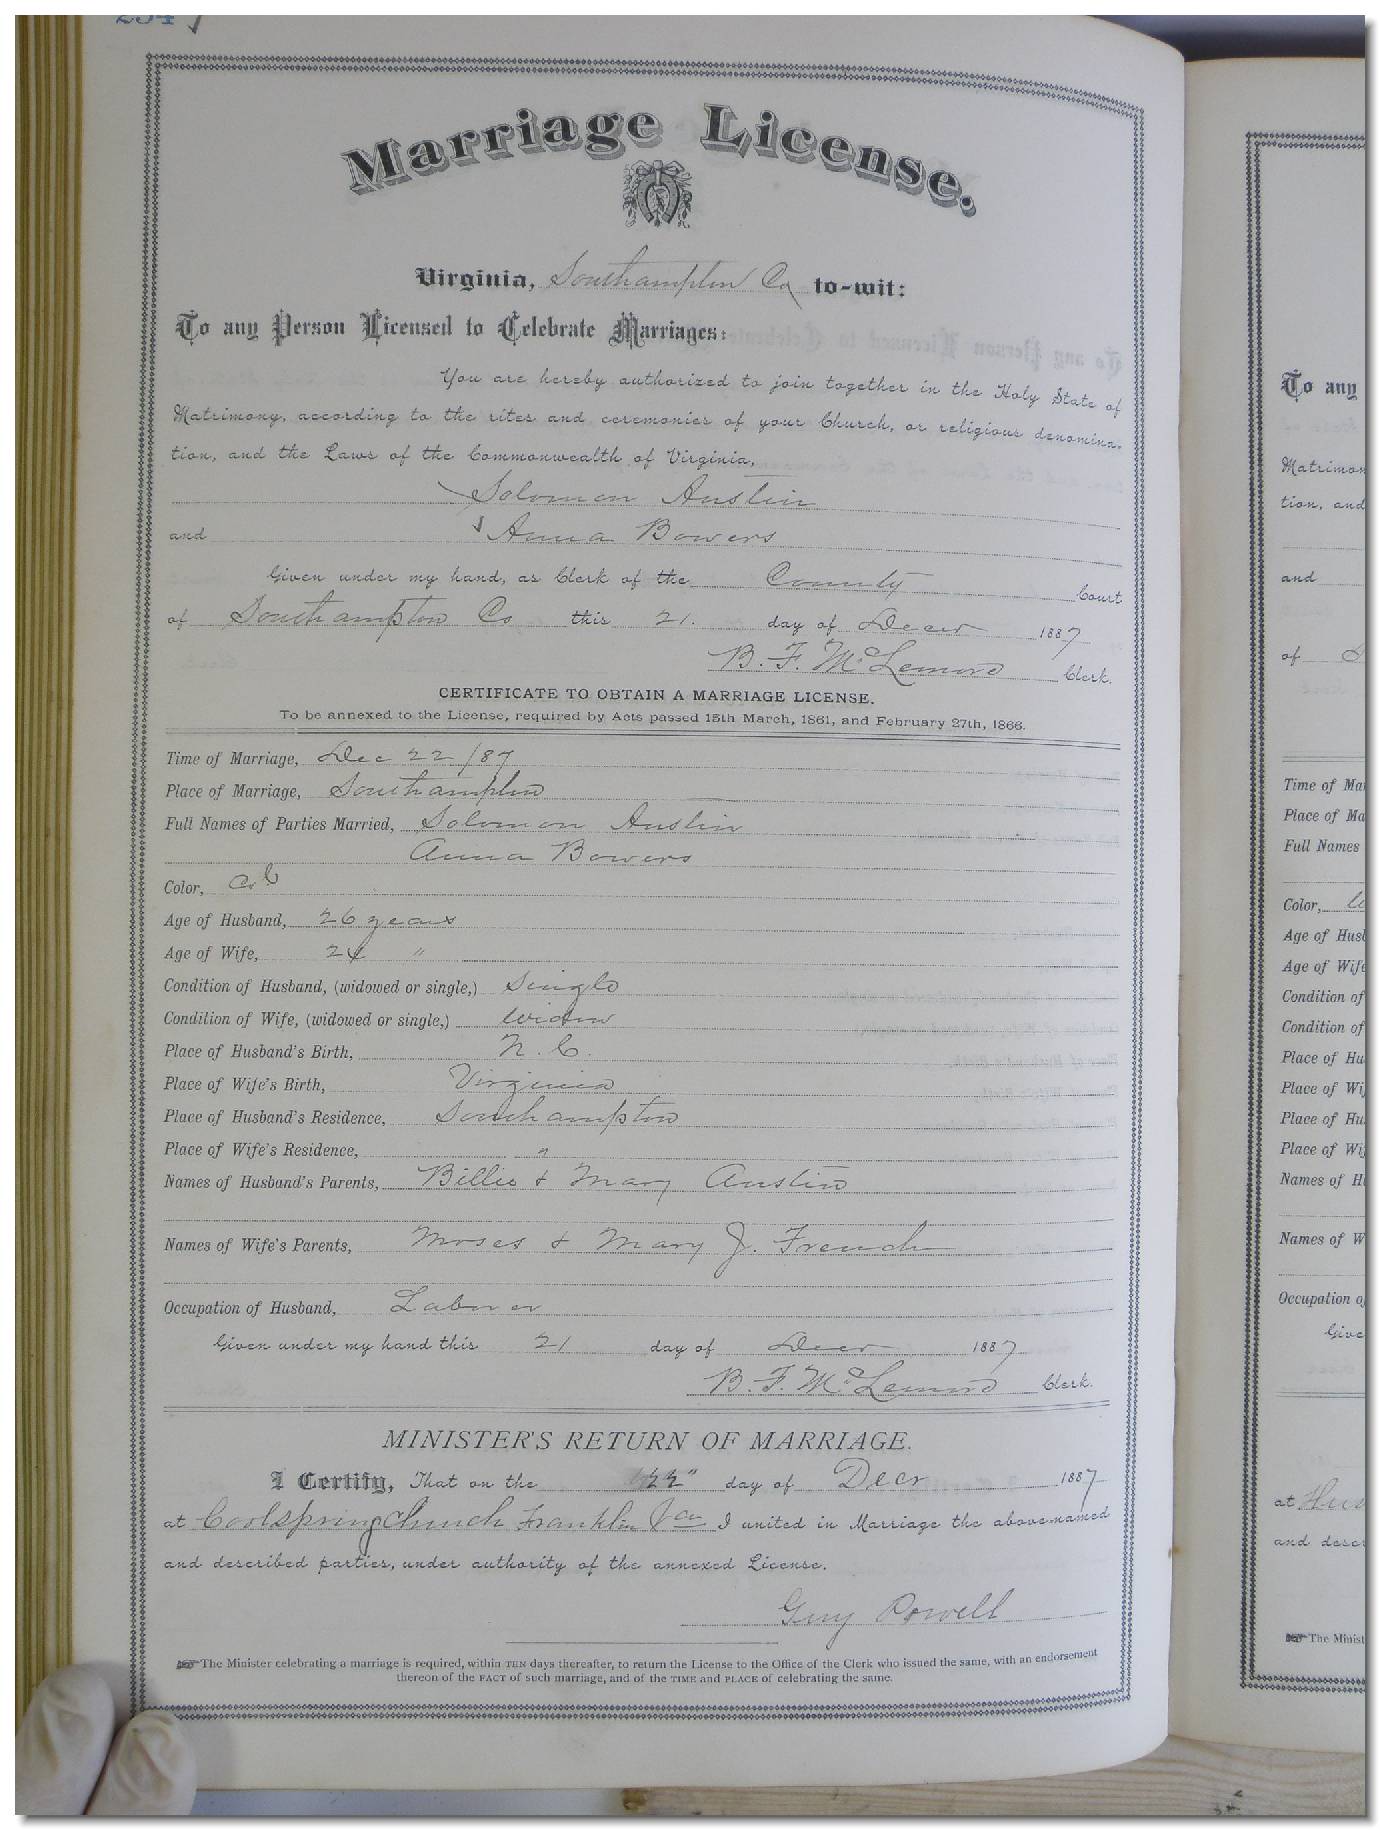 Marriage License.
Virginia, Southampton Co to-wit:
To any Person Licensed to Celebrate Marriages:
You are hereby authorized to join together in the Holy State of
Matrimony, according to the rites and ceremonies of your Church, or religious denomina-
tion, and the Laws of the Commonwealth of Virginia,
Solomon Austin
and Anna Bowers
Given under my hand, as Clerk of the County Court
of Southampton Co this 21. day of Decer 1887
B. F. McLemore Clerk.
CERTIFICATE TO OBTAIN A MARRIAGE LICENSE.
To be annexed to the License, required by Acts passed 15th March, 1861, and February 27th, 1866.
Time of Marriage, Dec 22/87
Place of Marriage, Southampton
Full Names of Parties Married, Solomon Austin
Anna Bowers
Color, Col
Age of Husband, 26 years
Age of Wife, 24 "
Condition of Husband, (widowed or single,) Single
Condition of Wife, (widowed or single,) widow
Place of Husband's Birth, N. C.
Place of Wife's Birth, Virginia
Place of Husband's Residence, Southampton
Place of Wife's Residence, "
Names of Husband's Parents, Billie & Mary Austin
Names of Wife's Parents, Moses & Mary J. French
Occupation of Husband, Laborer
Given under my hand this 21 day of Decer 1887
B. F. McLemore Clerk.
MINISTER'S RETURN OF MARRIAGE.
I Certify, That on the 22" day of Decr 1887
at Coolspring Church Franklin Va I united in Marriage the above-named
and described parties, under authority of the annexed License.
Guy Powell
The Minister celebrating a marriage is required, within TEN days thereafter, to return the License to the Office of the Clerk who issued the same, with an endorsement
thereon of the FACT of such marriage, and of the TIME and PLACE of celebrating the same.
To any
Matrimon
tion, and
and
of
Time of Ma
Place of Ma
Full Names
Color,
Age of Hus
Age of Wife
Condition of
Condition of
Place of Hu
Place of Wi
Place of Hu
Place of Wi
Names of H
Names of W
Occupation o
Give
at
and desc
The Minist